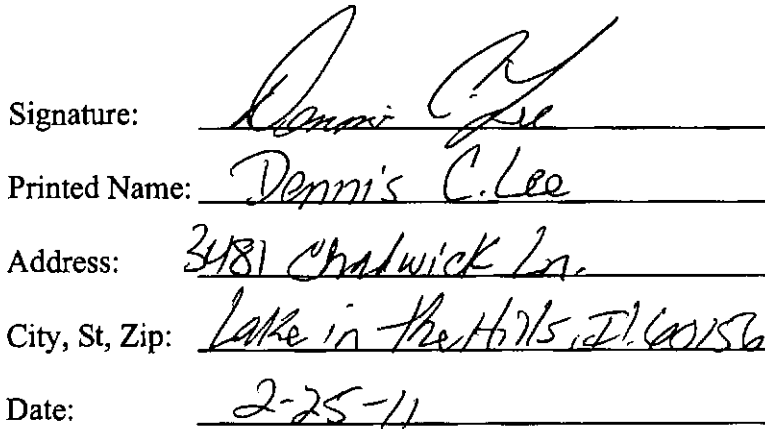 Signature: Dennis C. Lee
Printed Name: Dennis C. Lee
Address: 3481 Chadwick Ln.
City, St, Zip: Lake in the Hills, Il. 60156
Date: 2-25-11